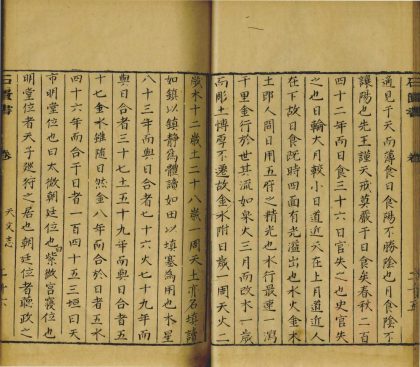 適見于天而薄食日食陽不勝陰也月食陰不
讓陽也先王謹天戒尊嚴于日食矣春秋二百
四十二年而日食三十六日官失之也史官失
之也輪大月較小日道近天在上月道近人
在下故日食既時四面有光溢出也水火金木
土即人間日用五府之精光也水行最速一瀉
千里金行於世其流如泉火三月而改木一歲
而彫土博厚不遷故金水附日歲一周天火二
歲木十二歲土二十八歲一周天土亦名填諸
如鎮以鎮靜為體諸如田以填塞為用也木星
八十三年而與日合者七十六火七十九年而
與日合者三十七土五十九年而與日合者五
十七金水雖隨日然金八年而合於日者五水
四十六年而合于日者一百四十五三垣曰天
市明堂位也曰太微朝廷位也曰紫微宮寢位也
明堂位者天子巡行之居也朝廷位者聽政之
石匱書 卷 天文志 二十六